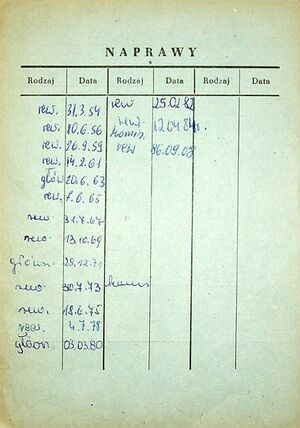 NAPRAWY
Rodzaj Data Rodzaj Data Rodzaj Data
rew. 31.3.54 rew 25.02.82
rew. 20.6.56 12.04.84r.
rew. 26.9.59 rew 86.09.08
rew. 14.2.61
głów 20.6.63
rew. 7.6.65
rew. 31.8.67
rew. 13.10.69
główn. 29.12.71
rew. 30.7.73
rew. 18.6.75
rew. 4.7.78
główn. 03.03.80